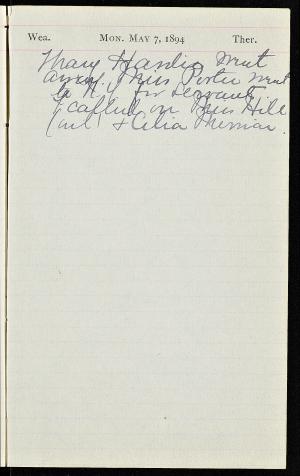 Wea. MON. MAY 7, 1894 Ther.
Mary Hardin went
away. Miss Porter went
to N. Y for servants
I called on Miss Hill
(out) & Celia Merriam.